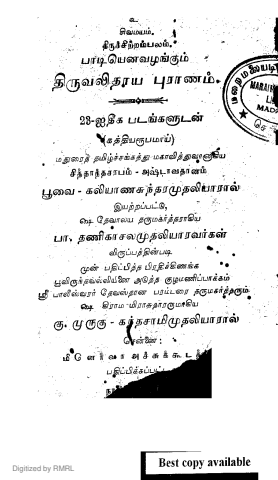 உ
சிவமயம்.
திருச்சிற்றம்பலம்.
பாடியெனவழங்கும்
திருவலிதாய புராணம்.
28-ஐதீக படங்களுடன்
(கத்தியரூபமாய்)
மதுரைத் தமிழ்ச்சங்கத்து மகாவித்துவானாகிய
சித்தாந்தசரபம் - அஷ்டாவதானம்
பூவை - கலியாணசுந்தரமுதலியாரால்
இயற்றப்பட்டு,
ஷை தேவாலய தருமகர்த்தராகிய
பா. தணிகாசலமுதலியாரவர்கள்
விருப்பத்தின்படி
முன் பதிப்பித்த பிரதிக்கிணங்க
பூவிருந்தவல்லியினை அடுத்த குழமணிப்பாக்கம்
ஸ்ரீ பாலீஸ்வரர் தேவஸ்தான பரம்பரை தருமகர்த்தரும்
ஷை கிராம மிராசுதாரருமாகிய
கு. முருகு - கந்தசாமிமுதலியாரால்
சென்னை:
அச்சுக்கூடத்
பதிப்பிக்கப்பட்ட
மறைமலையடி
MARAIM
LI
MAD
Best copy available
Digitized by RMRL